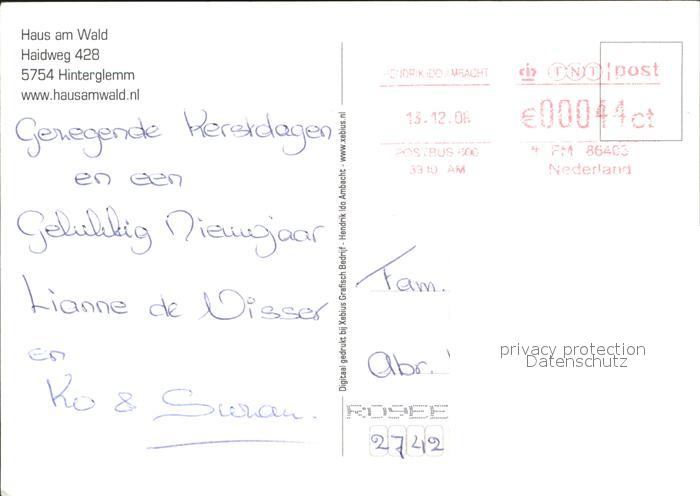 Haus am Wald
Haidweg 428
5754 Hinterglemm
www.hausamwald.nl
Gezegende Kerstdagen
en een
Gelukkig Nieuwjaar
Lianne de Visser
en
Ko & Suzan.
Digitaal gedrukt bij Xebius Grafisch Bedrijf - Hendrik ido Ambacht - www.xebius.nl
HENDRIK IDO AMBACHT
13.12.06
POSTBUS
3340 AM
TNT post
€00044ct
FM 86403
Nederland
Fam.
Abr.
privacy protection
Datenschutz
2742